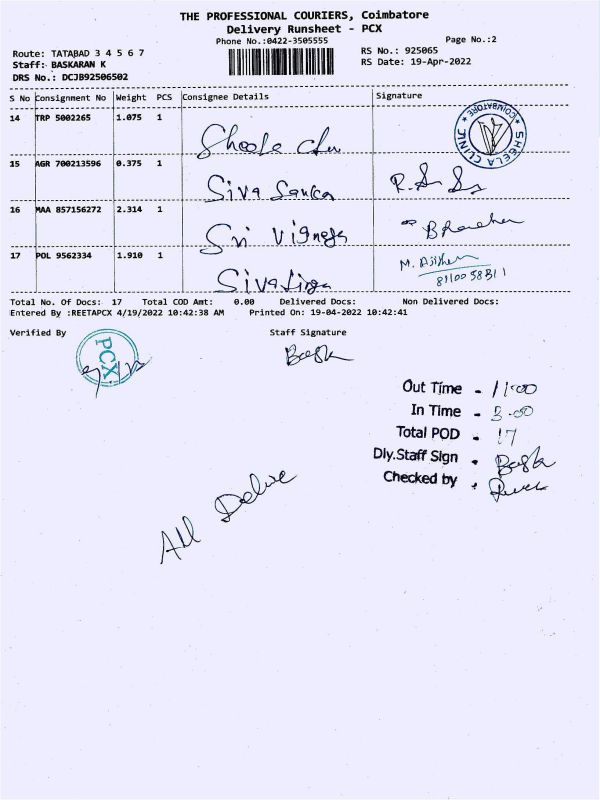 THE PROFESSIONAL COURIERS, Coimbatore
Delivery Runsheet - PCX
Phone No.:0422-3505555
Page No.:2
Route: TATABAD 3 4 5 6 7
RS No.: 925065
Staff: BASKARAN K
RS Date: 19-Apr-2022
DRS No.: DCJB92506502
S No Consignment No Weight PCS Consignee Details Signature
14 TRP 5002265 1.075 1
SHEELA CLINIC * COIMBATORE *
15 AGR 700213596 0.375 1
Siva Sankar
16 MAA 857156272 2.314 1
Sri Vignesh
17 POL 9562334 1.910 1
Sivalinga
Total No. Of Docs: 17 Total COD Amt: 0.00 Delivered Docs: Non Delivered Docs:
Entered By :REETAPCX 4/19/2022 10:42:38 AM Printed On: 19-04-2022 10:42:41
Verified By Staff Signature
PCX
Out Time - 11:00
In Time - 3.00
Total POD - 17
Dly.Staff Sign -
Checked by -
All